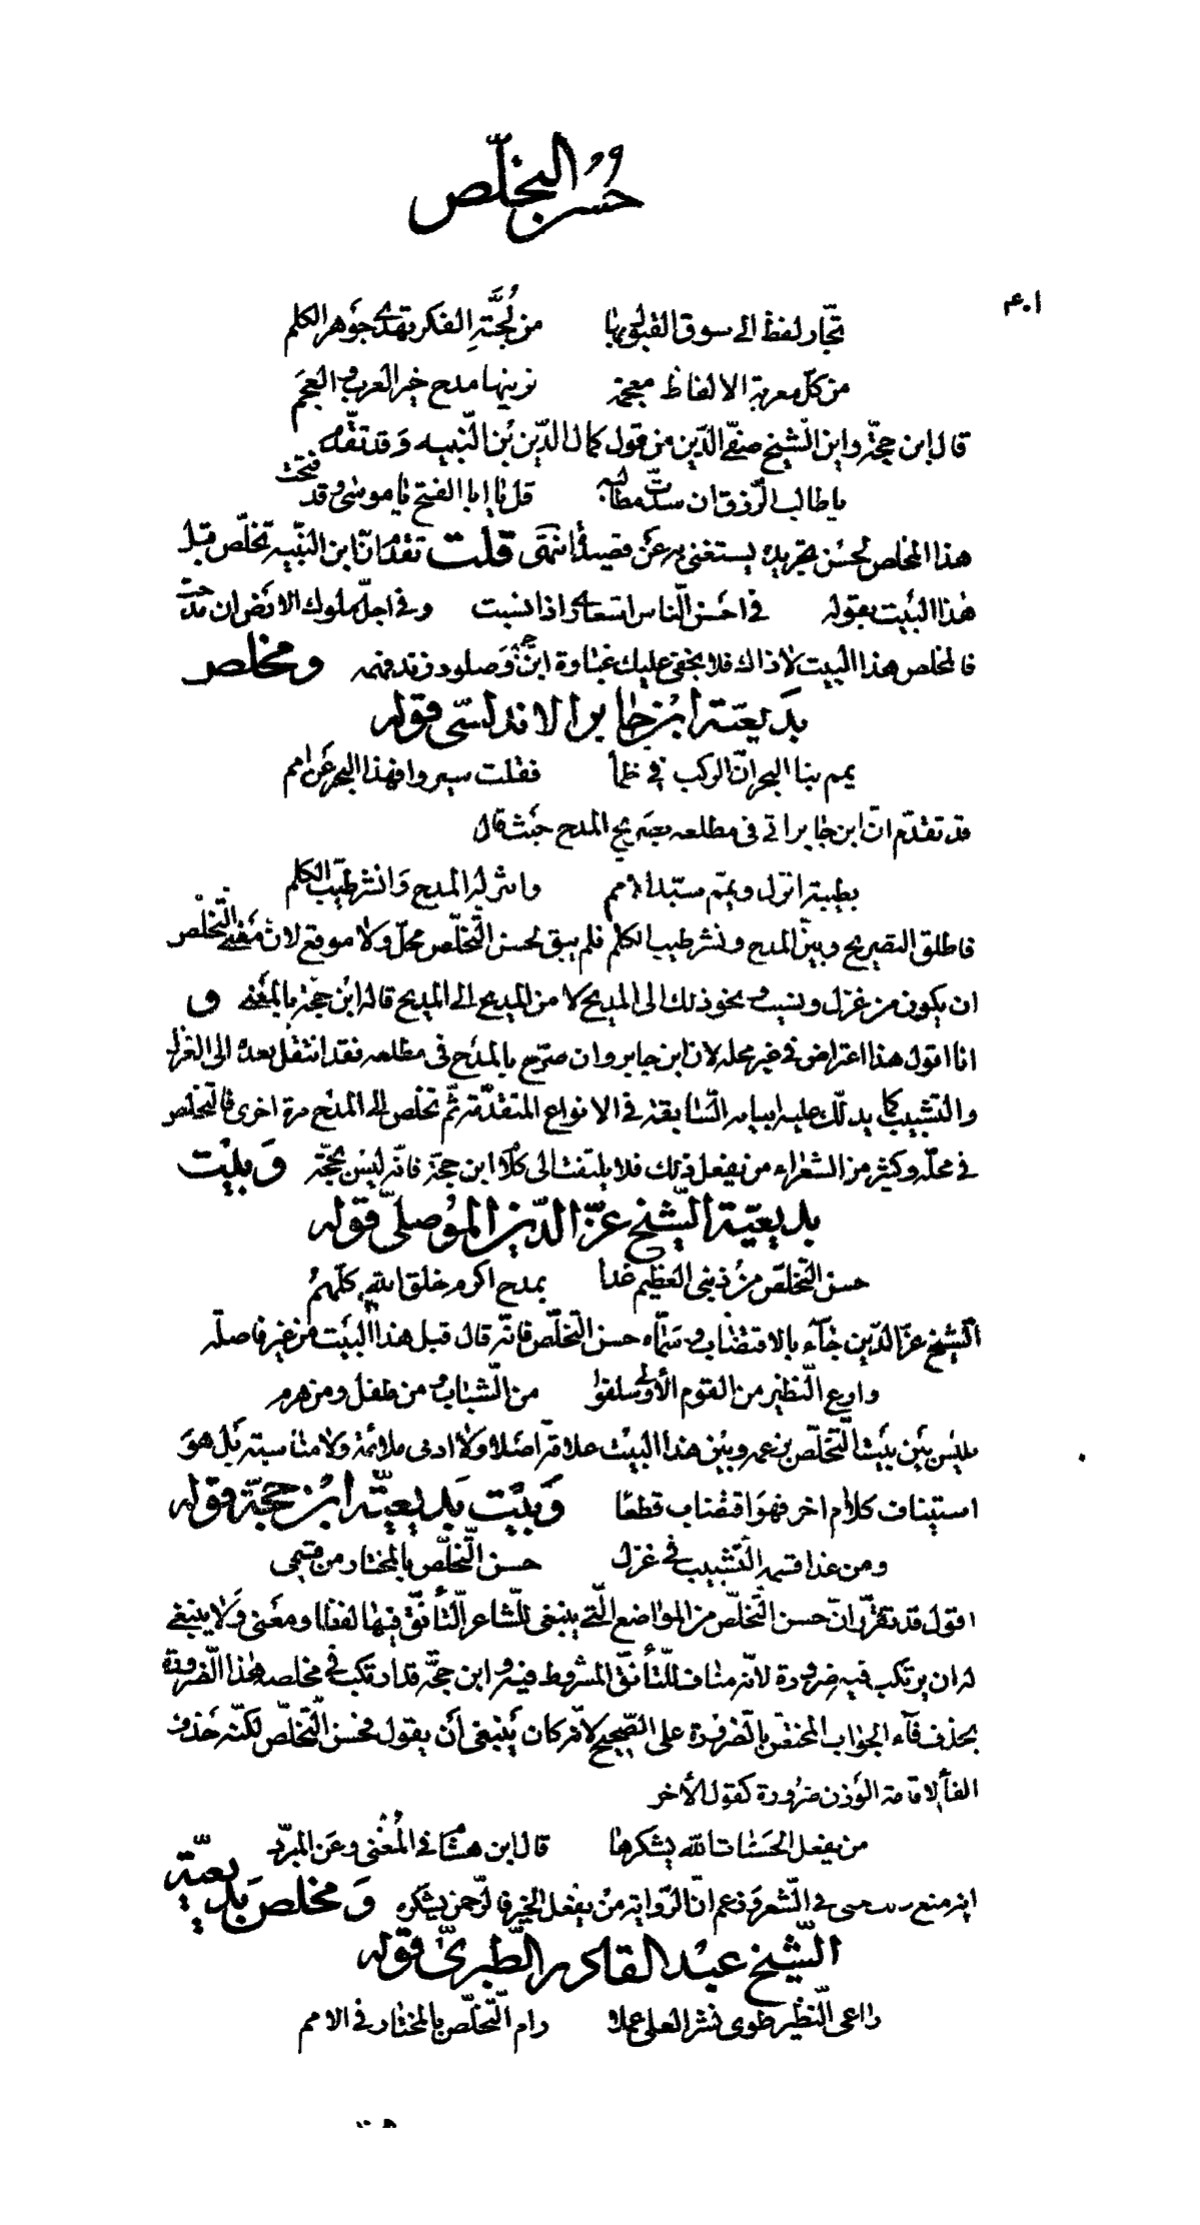 حُسْنُ التخلّص
٤٠١
تجّار لفظ الى سوق القبول بها من لُجّةِ الفكر تهدى جَوهر الكلم
من كلّ معربة الالفاظ معجمة تزينها مدح خير العرب والعجَم
قال ابن حجّة واين الشّيخ صفىّ الدّين من قول كمال الدّين بْن النّبيه وَقد تقدّم
يا طالب الرّزق ان سدّت مطالبه قل يا ابا الفتح يا موسى وقد فتحت
هذا المخلص لحسن تجريده يستغنى به عَن قصيدة انتهى قلت تقدم انّ ابن النبيه تخلّص قبل
هذا البَيت بقوله فى احسَن النّاس اشعارا اذا نسبت وفى اجلّ ملوك الارض ان مدحت
فالمخلص هذا البيت لا ذاك فلا يخفى عليك غباوة ابن حجّة وَصلود زند فهمه ومخلص
بَديعيّة ابْن جابر الاندلسىّ قوله
يمم بنا البحر انّ الركب فى ظمأ فقلت سيروا فهذا البحر عَن امم
قد تقدّم انّ ابن جابر اتى فى مطلعه بتصريح المدح حيْث قال
بطيبة انزل ويمّم سيّد الامم وانثر له المدح وَانشر طيّب الكلم
فاطلق التصريح وبيّن المدح ونشر طيب الكلم فلم يبق لحسن التّخلّص محلّ ولا موقع لانّ مَعْنى التّخلّص
ان يكون من غزل ونسيب ونحو ذلك الى المديح لا من المديح الى المديح قاله ابْن حجّة بالمَعْنى و
انا اقول هذا اعتراض فى غير محله لان ابن جابر وان صرّح بالمدَح فى مطلعه فقد انتقل بعدهُ الى الغزل
والتشبيب كما يدلّك عليه ابياته السّابقة فى الانواع المتقدّمة ثمّ تخلّص الى المدْح مرة اخرى فالتخلص
فى محلّه وكثير من الشعراء من يفعل ذلك فلا يلتفت الى كلام ابن حجة فانّه ليْس بحجّة وَبَيْت
بديعيّة الشّيخ عزّ الدّين الموُصلىّ قوله
حسن التّخلّص مْن ذنبى العَظيم غدا بمدح اكرم خلق اللهِ كلّهمُ
الشّيخ عزّ الدّين جَاء بالاقتضاب وسَمّاه حسن التّخلّص فانّه قال قبل هذا البيَت من غير فاصلة
وارع النّظير من القوم الأولى سلفوا من الشّباب ومن طفل ومن هرم
فليْس بيَن بيَت التّخلّص بزعمه وبيْن هذا البيْت علاقة اصَلا ولا ادنى ملائمة ولا مناسبة بَل هوَ
استيناف كلام اخر فهوَ اقتضاب قطعًا وَبيْت بَديعيّة ابْن حجّة قوله
ومن غدا قسمه التّشبيب فى غزل حسن التّخلّص بالمختار من قسمى
اقول قد تقرّر انّ حسن التّخلّص من المواضع الّتى ينبغى للشّاعر التّأنّق فيها لفظا ومعَنى وَلا ينبغى
له ان يرتكب فيه ضرورة لانّه مناف للتّأنّق المشروط فيه وابن حجّة قد ارتكب فى مخلصه هذا الضّرورة
بحذف فآء الجواب المختصّ بالضّرورة على الصّحيح لانّه كان يَنبغى أن يقول فحسن التّخلّص لكنّه حَذف
الفآء لاقامة الوَزن ضرورة كقول الأخر
من يفعل الحسَنات الله يشكرها قال ابن هشام فى المُغْنى وعَن المبرّد
انه منع حتى فى الشّعر وَزعم انّ الرّواية مْن يفْعل الخيْر فالرّحمن يشكره وَمخلص بَديعيّة
الشّيخ عبْد القادر الطّبرىّ قوله
راعى النّظير طوى نشر العلى عملا رام التّخلّص بالمختار فى الامم